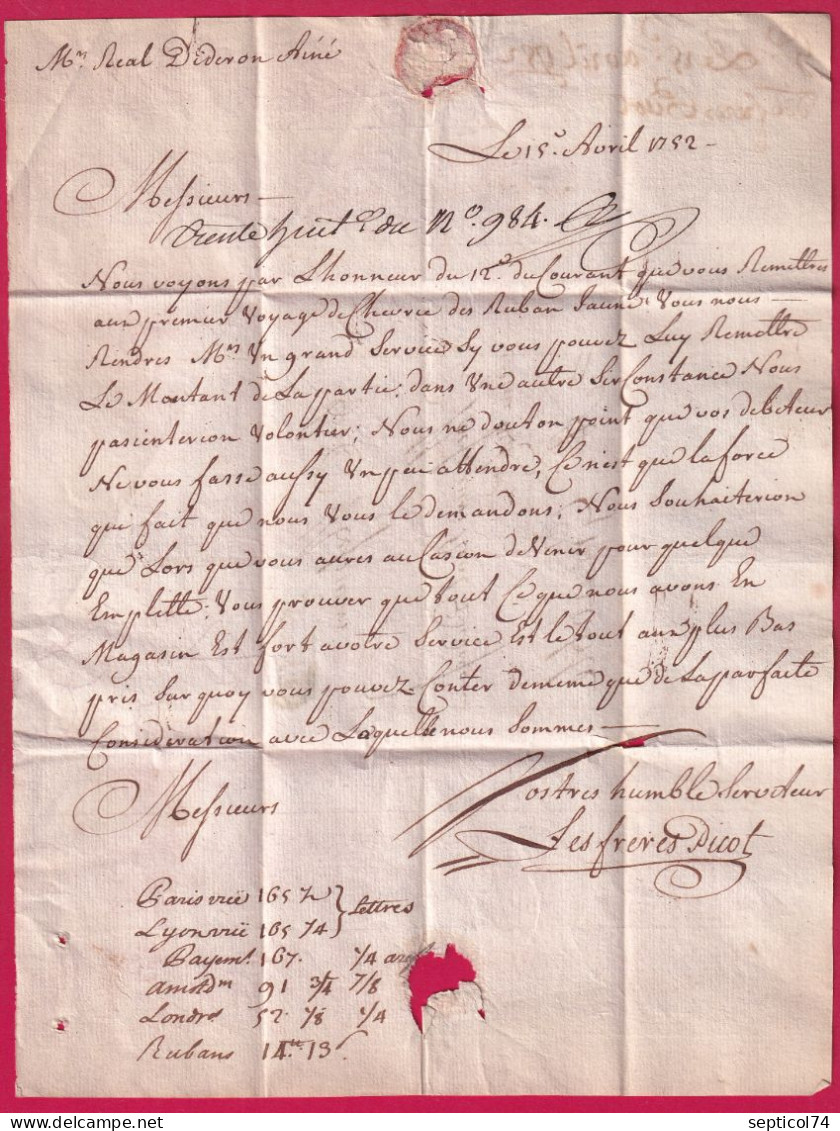 Mrs Real Dideron Ainé
Le 15e. Avril 1752
Messieurs
trente huit du No. 984.
Nous voyons par Lhonneur du 12e. du Courant que vous Remettres
aux premier Voyage de Chevrie des Ruban Jaune, Vous nous
Rendres Mrs Un grand Service Sy vous pouvez Luy Remettre
Le Montant de La partie; dans Une autre Sirconstance Nous
pasienterion Volontier; Nous ne douton point que vos debiteur
Ne vous fasse aussy Un peu attendre, Ce n'est que la force
qui fait que nous Vous le demandons; Nous Souhaiterion
que Lors que vous aures aucasion de Venir pour quelque
Emplette; Vous prouver que tout Ce que nous avons En
Magasin Est fort avotre Service Est le tout aux plus Bas
pris Sur quoy vous pouvez Conter de meme que de La parfaite
Consideration avec Laquelle nous Sommes
Messieurs
Vostres humble Serviteur
Les freres Picot
Paris vüe 165 1/2
Lyon vüe 165 1/4 } Lettres
Payemt. 167. 1/4
Amstdm 91 3/4 7/8
Londres 52. 7/8 1/4
Rubans 14tt. 13s.
delcampe.net
septicol74